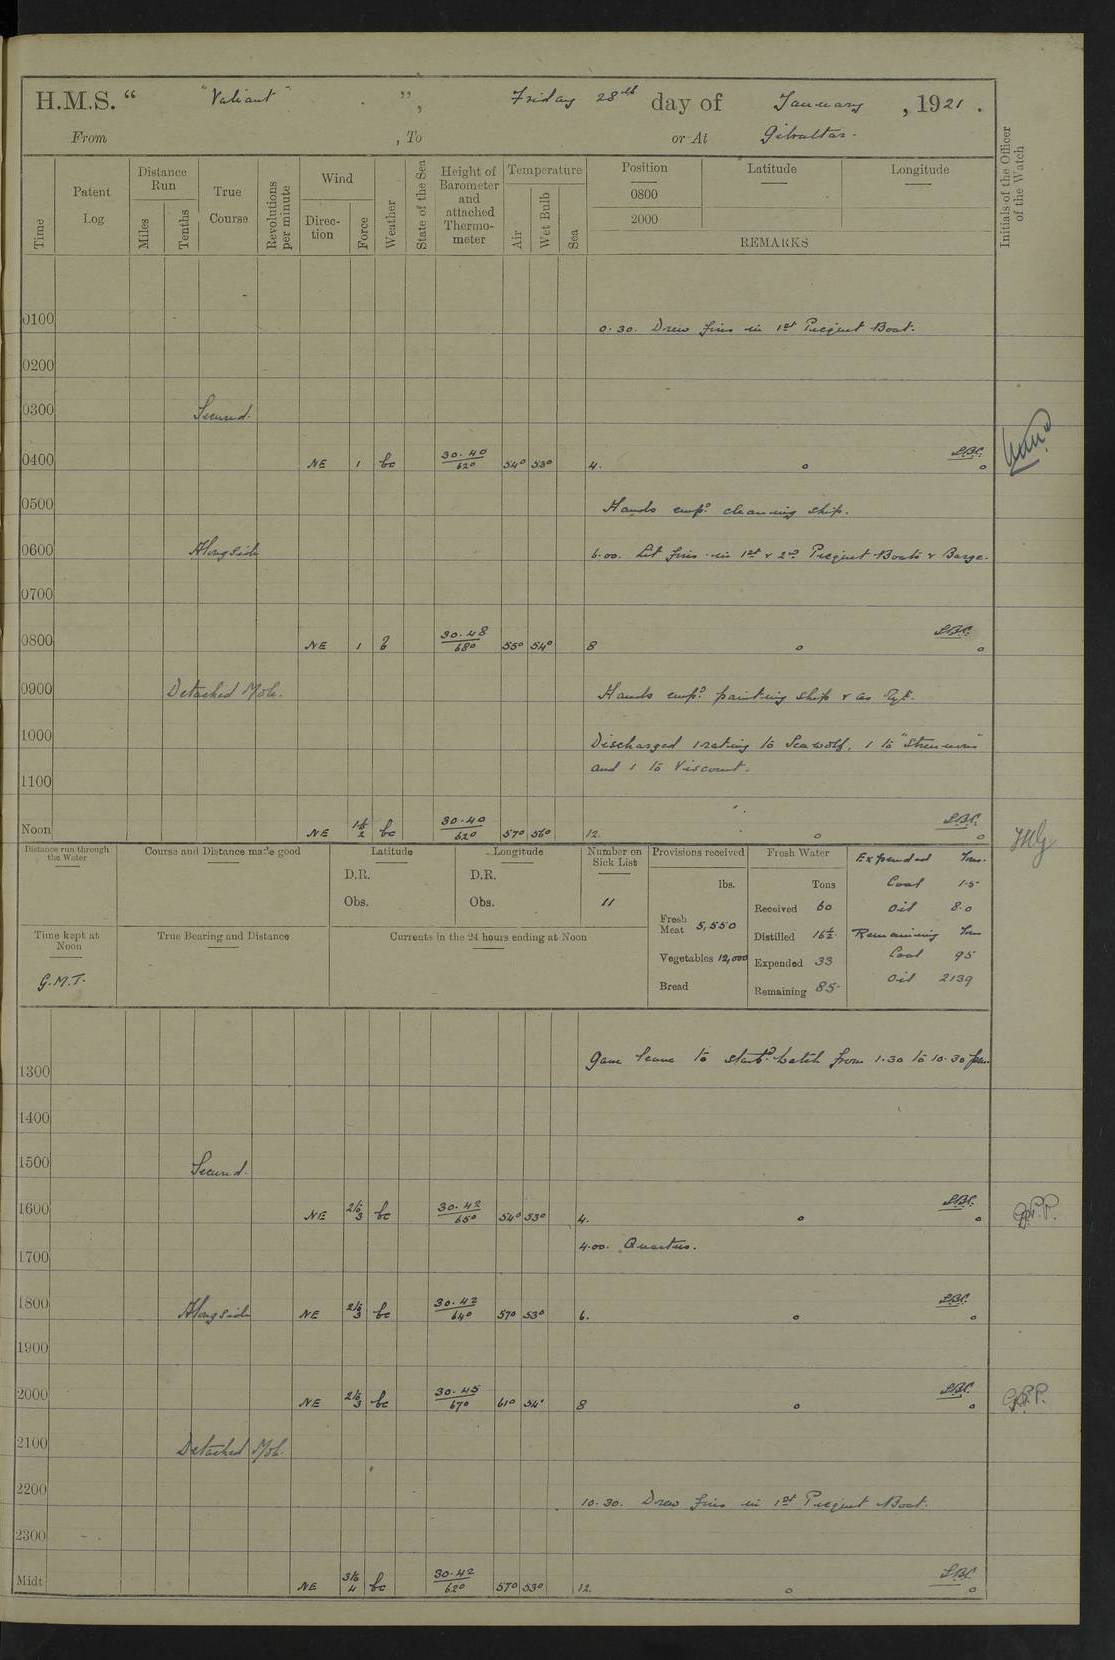 H.M.S. "Valiant", Friday 28th day of January, 1921.
From , To or At Gibraltar.
Time Patent Log Distance Run Miles Tenths True Course Revolutions per minute Wind Direction Force Weather State of the Sea Height of Barometer and attached Thermometer Temperature Air Wet Bulb Sea Position 0800 2000 Latitude Longitude REMARKS Initials of the Officer of the Watch
0100 0.30. Drew fires in 1st Picquet Boat.
0200
0300 Secured.
0400 NE 1 bc 30.40 62° 54° 53° 4.
0500 Hands emp'd cleaning ship.
0600 Alongside 6.00. Lit fires in 1st & 2nd Picquet Boats & Barge.
0700
0800 NE 1 b 30.48 68° 55° 54° 8
0900 Detached Mole. Hands emp'd painting ship & as reqt.
1000 Discharged 1 rating to Seawolf, 1 to "Strenuous"
1100 and 1 to Viscount.
Noon NE 1 to 2 bc 30.40 62° 57° 56° 12.
Distance run through the Water Course and Distance made good Latitude Longitude Number on Sick List Provisions received Fresh Water Expended Tons.
D.R. D.R. lbs. Tons Coal 1.5
Obs. Obs. 11 Received 60 Oil 8.0
Fresh Meat 5,550 Distilled 16½ Remaining Tons
Time kept at Noon True Bearing and Distance Currents in the 24 hours ending at Noon
Vegetables 12,000 Expended 33 Coal 95
G.M.T. Bread Remaining 85 Oil 2139
1300 Gave leave to starb'd watch from 1.30 to 10.30 pm.
1400
1500 Secured.
1600 NE 2 to 3 bc 30.42 65° 54° 53° 4.
4.00. Quarters.
1700
1800 Alongside NE 2 to 3 bc 30.42 64° 57° 53° 6.
1900
2000 NE 2 to 3 bc 30.45 67° 61° 54° 8
2100 Detached Mole.
2200 10.30. Drew fires in 1st Picquet Boat.
2300
Midt NE 3 to 4 bc 30.42 62° 57° 53° 12.